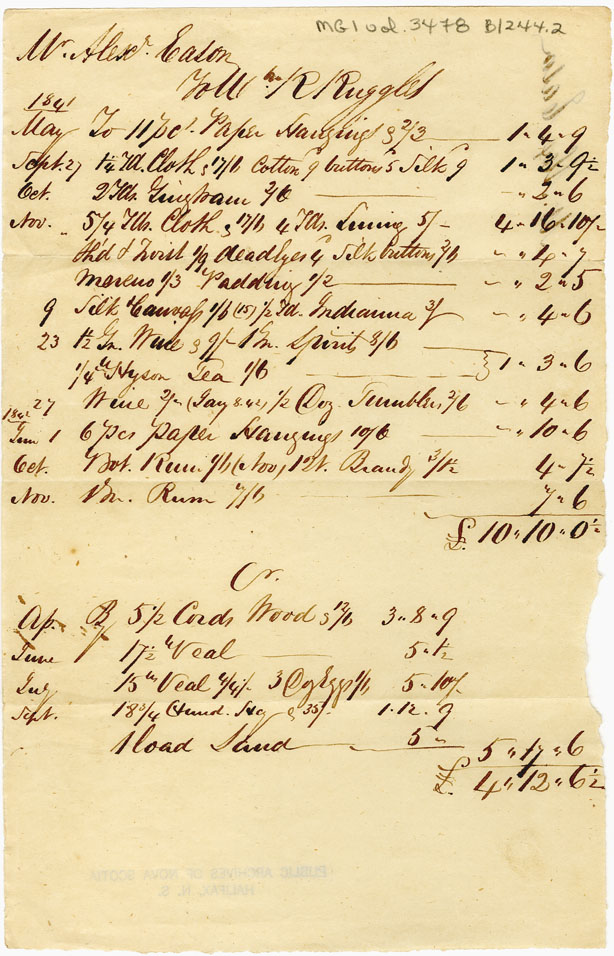 MG1 vol. 3478 B1244.2
Mr. Alexr. Eason
To Wm R Ruggles
1841
May To 11 pcs. Paper Hangings @ 2/3 1 " 4 " 9
Sept. 27 1¼ Yd. Cloth @ 17/6 Cotton 9 buttons 5 Silk 9 1 " 3 " 9½
Oct. 2 Yds. Gingham 2/6 - " 2 " 6
Nov. 5¼ Yds. Cloth @ 17/6 4 Yds. Lining 5/- 4 " 16 " 10½
Th'd & Twist 1/9 Silk buttons 2/6 - " 4 " 7
Mereno 1/3 Padding 1/2 - " 2 " 5
9 Silk Canvass 1/6 (15) 1/2 Yd. Indianna 3/ - " 4 " 6
23 1½ Gn. Wine @ 9/- 1 Gn. Spirits 8/6
1/4 lb Hyson Tea 1/6 1 " 3 " 6
27 Wine 2/- (Jany 8. 42) 1/2 Doz. Tumblers 2/6 - " 4 " 6
1842
June 1 6 pcs Paper Hangings 10/6 - " 10 " 6
Oct. Bot. Rum 1/6 (Nov) 1 Bt. Brandy 3/1½ 4 " 7½
Nov. 1 Gn. Rum 7/6 7 " 6
£ 10 " 10 " 0½
Cr.
Ap. By 5½ Cords Wood @ 12/6 3 " 8 " 9
June 17½ lb Veal 5 " 1½
July 15 lb Veal 3 Dz Eggs 1/6 5 " 10½
Sept. 18¾ Hund. Hay @ 35/- 1 " 12 " 9
1 load Sand 5 " 5 " 17 " 6
£ 4 " 12 " 6½
PUBLIC ARCHIVES OF NOVA SCOTIA
HALIFAX, N. S.